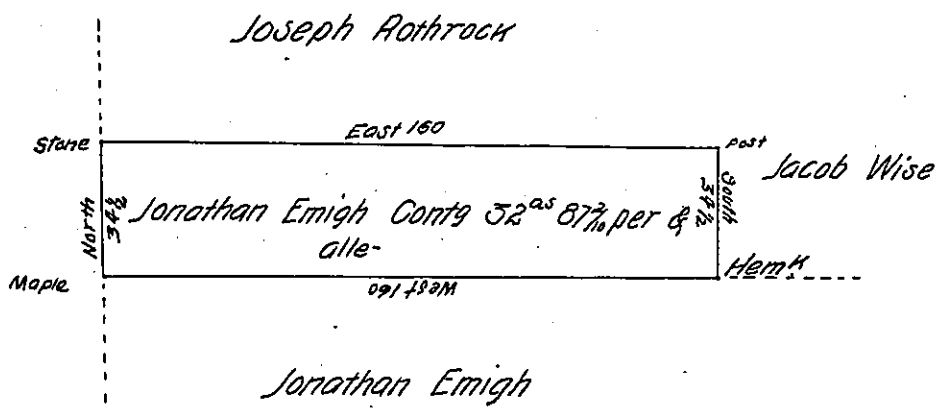 Joseph Rothrock
East 160
Stone
post
Jacob Wise
North
34½
Jonathan Emigh Contg 32as 87 2/10 per &
alle-
South
34½
Hemk
Maple
West 160
Jonathan Emigh